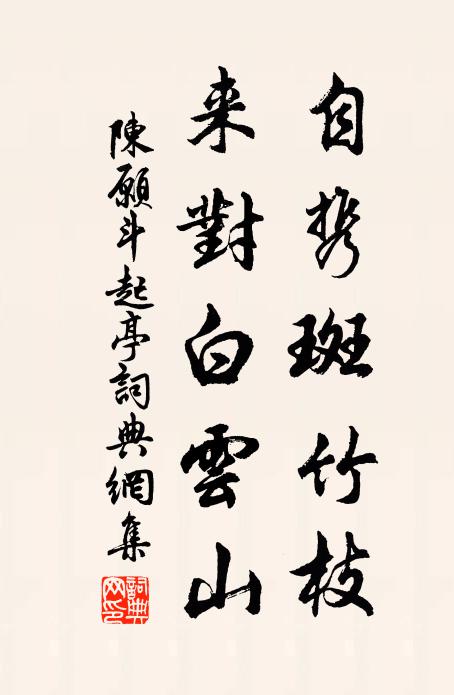 自携斑竹枝
来對白雲山
陳願斗起亭詞典網集
詞典網印